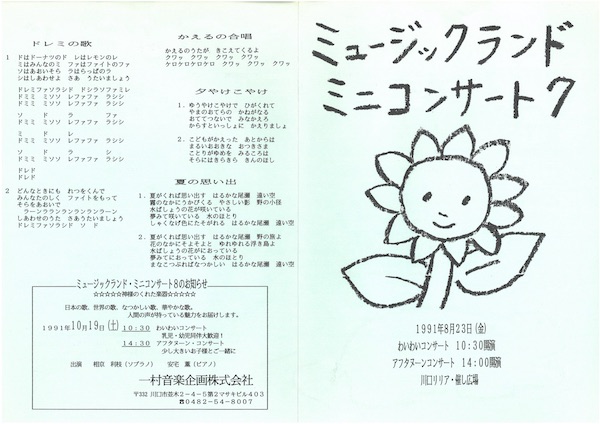 ドレミの歌
1 ドはドーナツのド レはレモンのレ
ミはみんなのミ ファはファイトのファ
ソはあおいそら ラはらっぱのラ
シはしあわせよ さあ うたいましょう
ドレミファソラシド ドシラソファミレ
ドミミ ミソソ レファファ ラシシ
ドミミ ミソソ レファファ ラシシ
ソ ド ラ ファ
ドミミ ミソソ レファファ ラシシ
ミ ド レ
ドミミ ミソソ レファファ ラシシ
ソ ド ラ シ
ドミミ ミソソ レファファ ラシシ
ドレド
ドレド
2 どんなときにも れつをくんで
みんなたのしく ファイトをもって
そらをあおいで
ラーンラランランランランラーン
しあわせのうた さあうたいましょう
ドレミファソラシド ソ ド
かえるの合唱
かえるのうたが きこえてくるよ
クワッ クワッ クワッ クワッ
ケロケロケロケロ クワッ クワッ クワッ
夕やけこやけ
1．ゆうやけこやけで ひがくれて
やまのおてらの かねがなる
おててつないで みなかえろ
からすといっしょに かえりましょ
2．こどもがかえった あとからは
まるいおおきな おつきさま
ことりがゆめを みるころは
そらにはきらきら きんのほし
夏の思い出
1．夏がくれば思い出す はるかな尾瀬 遠い空
霧のなかにうかびくる やさしい影 野の小径
水ばしょうの花が咲いている
夢みて咲いている 水のほとり
しゃくなげ色にたそがれる はるかな尾瀬 遠い空
2．夏がくれば思い出す はるかな尾瀬 野の旅よ
花のなかにそよそよと ゆれゆれる浮き島よ
水ばしょうの花がにおっている
夢みてにおっている 水のほとり
まなこつぶればなつかしい はるかな尾瀬 遠い空
ミュージックランド・ミニコンサート8のお知らせ
☆☆☆☆☆神様のくれた楽器☆☆☆☆☆
日本の歌、世界の歌、なつかしい歌、華やかな歌。
人間の声が持っている魅力をお届けします。
1991年10月19日(土) 10:30 わいわいコンサート
乳児・幼児同伴大歓迎！
14:30 アフタヌーン・コンサート
少し大きいお子様とご一緒に
出演 相京 利枝(ソプラノ) 安宅 薫(ピアノ)
一村音楽企画株式会社
〒332 川口市並木2－4－5第2マサキビル403
☎0482－54－8007
ミュージックランド
ミニコンサート7
1991年8月23日(金)
わいわいコンサート 10:30開演
アフタヌーンコンサート 14:00開演
川口リリア・催し広場